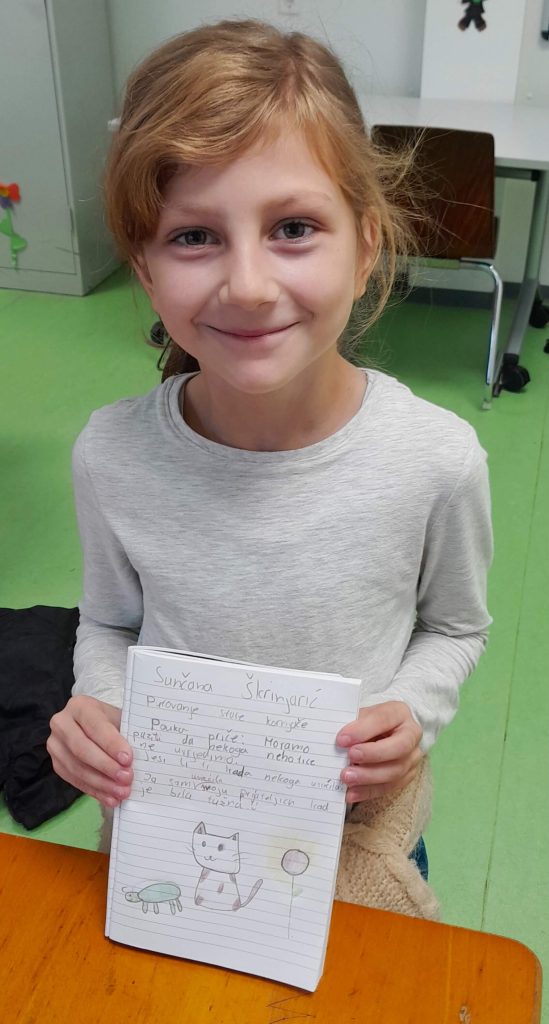 Sunčana Škrinjarić
Putovanje stare kornjače
Pouka priče: Moramo
paziti da nekoga nehotice
ne uvrijedimo.
Jesi li ti ikada nekoga uvrijedila
uvrijedila
Ja sam svoju prijateljicu kad
je bila tužna